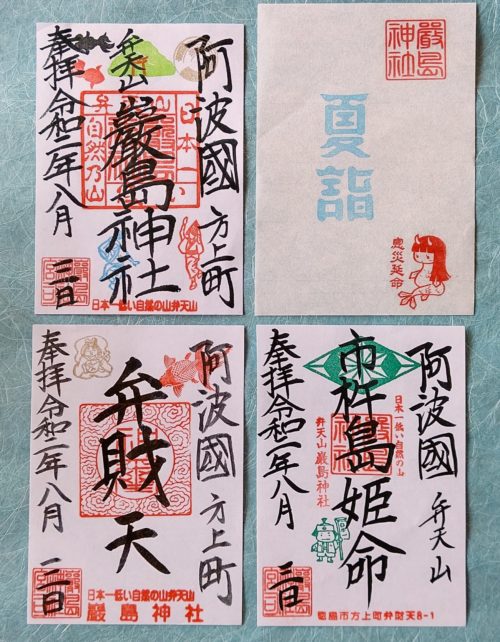 阿波國 方上町
弁天山
巖島神社
奉拝 令和二年八月
日本一
自然乃山
日本一低い自然の山弁天山
嚴島神社
夏詣
延命
阿波國 方上町
弁財天
奉拝 令和二年八月
日本一低い自然の山弁天山
嚴島神社
阿波國 弁天山
市杵島姫命
日本一低い自然の山
弁天山 嚴島神社
奉拝 令和二年八月
徳島市方上町弁財天8-1